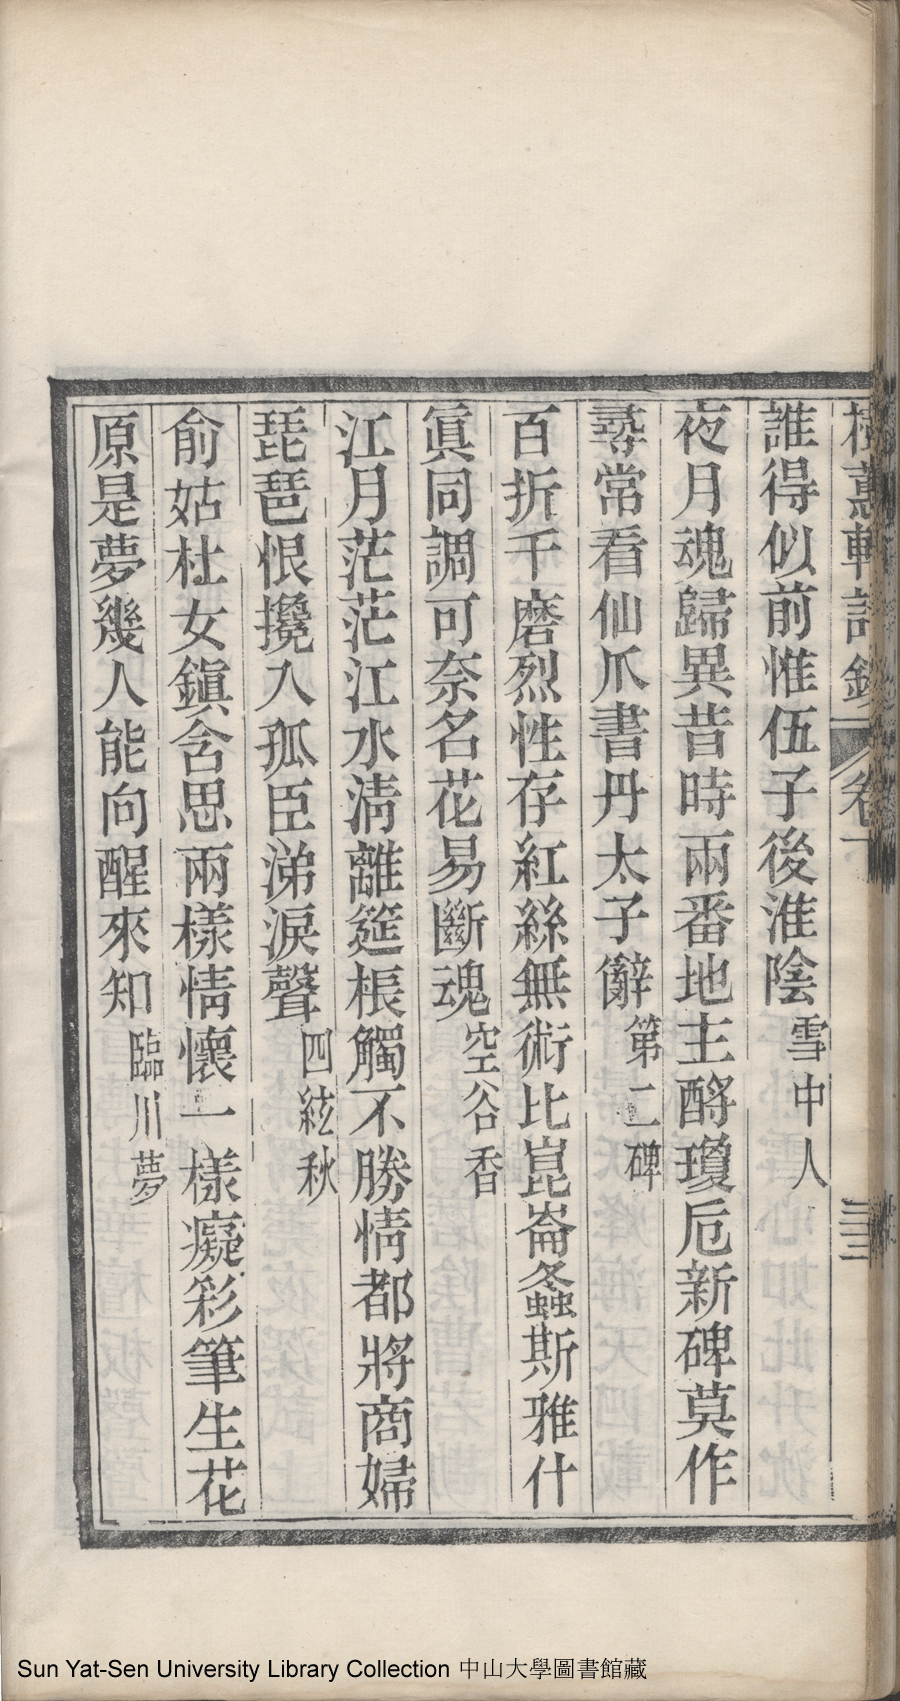 軒詩鈔 卷下 三三
誰得似前惟伍子後淮陰雪中人
夜月魂歸異昔時兩番地主酹瓊卮新碑莫作
尋常看仙爪書丹太子辭第二碑
百折千磨烈性存紅絲無術比崑崙螽斯雅什
眞同調可奈名花易斷魂空谷香
江月茫茫江水淸離筵棖觸不勝情都將商婦
琵琶恨攙入孤臣涕淚聲四絃秋
俞姑杜女鎭含思兩樣情懷一樣癡彩筆生花
原是夢幾人能向醒來知臨川夢
Sun Yat-Sen University Library Collection 中山大學圖書館藏